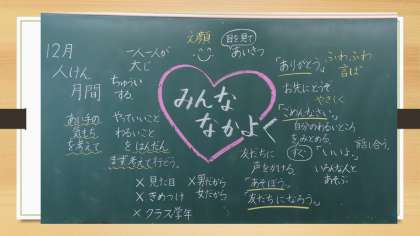 12月
人けん
月間
あい手の
気もち
を考えて
一人一人が
大じ
ちゅうい
する
やっていいこと
わるいこと
をはんだん
まず考えて行どう。
× 見た目
× きめつけ
× クラス学年
× 男だから
女だから
笑顔
目を見て
あいさつ
みんな
なかよく
「ありがとう。」
ふわふわ
言ば
お先にどうぞ
やさしく
「ごめんなさい。」
自分のわるいところ
をみとめる
話し合う。
すぐ
「いいよ。」
友だちに
声をかける
いろんな人と
あそぶ
「あそぼう。」
「友だちになろう。」